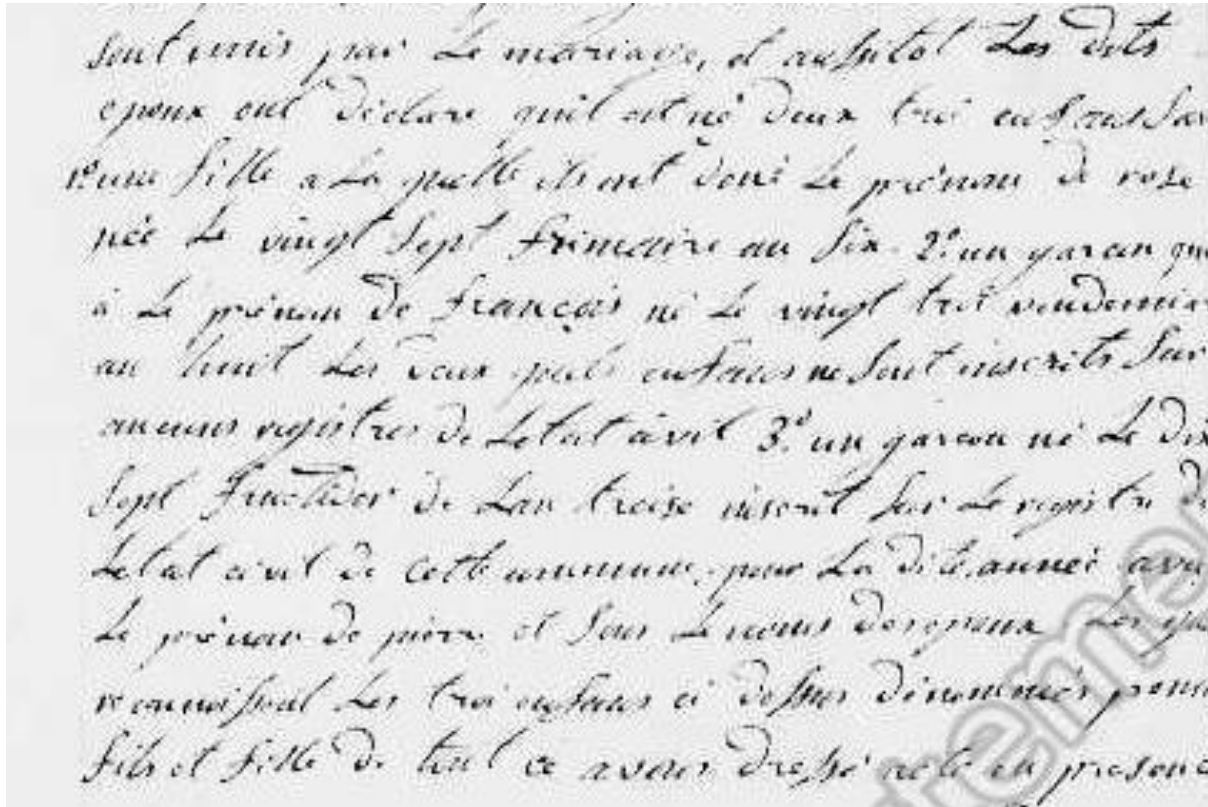 sont unis par Le mariage, et aussitot Les dits
epoux ont déclaré quil est né deux troi enfans
1º une fille a La quelle ils ont doné Le prénom de rose
née Le vingt Sept frimaire an Six. 2º un garcon
à Le prénom de françois né Le vingt troi
an huit Les deux quels enfans ne Sont inscrits Sur
aucuns registres de Letat civil 3º un garcon né Le dix
Sept fructidor de Lan treize inscrit Sur Le registre de
Letat civil de cette commune, pour La dite année avec
Le prénom de pierre et Sous Le noms
reconnoissent Les troi enfans ci dessus dénommés pour
fils et fille de tout ce avons dressé acte en